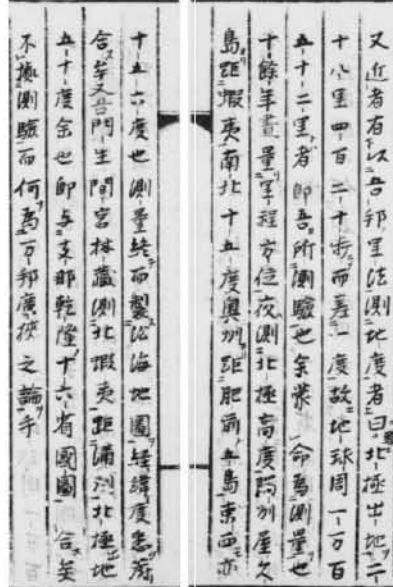 又近者有以吾邦里法測地度者曰北極出地二
十八里四百二十步而差一度故地球周一万百
五十二里者即吾所測驗也余蒙命為測量也
十餘年晝量里程方位夜測北極高度隅州屋久
島距蝦夷南北十五度奧州距肥前五島東西亦
十五六度也測量終而製沿海地圖経緯度悉
合矣又吾門生間宮林蔵測北蝦夷距満州北極地
五十度余也即与支那乾隆十六省国圖合矣
不據測驗而何為万邦廣狹之論乎